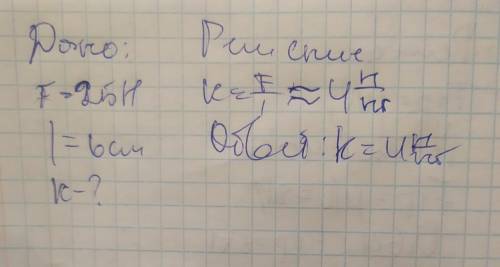 Дано:
F=25Н
l=6см
k-?
Решение
k=F/l≈4 Н/кг
Ответ: k=4 Н/кг